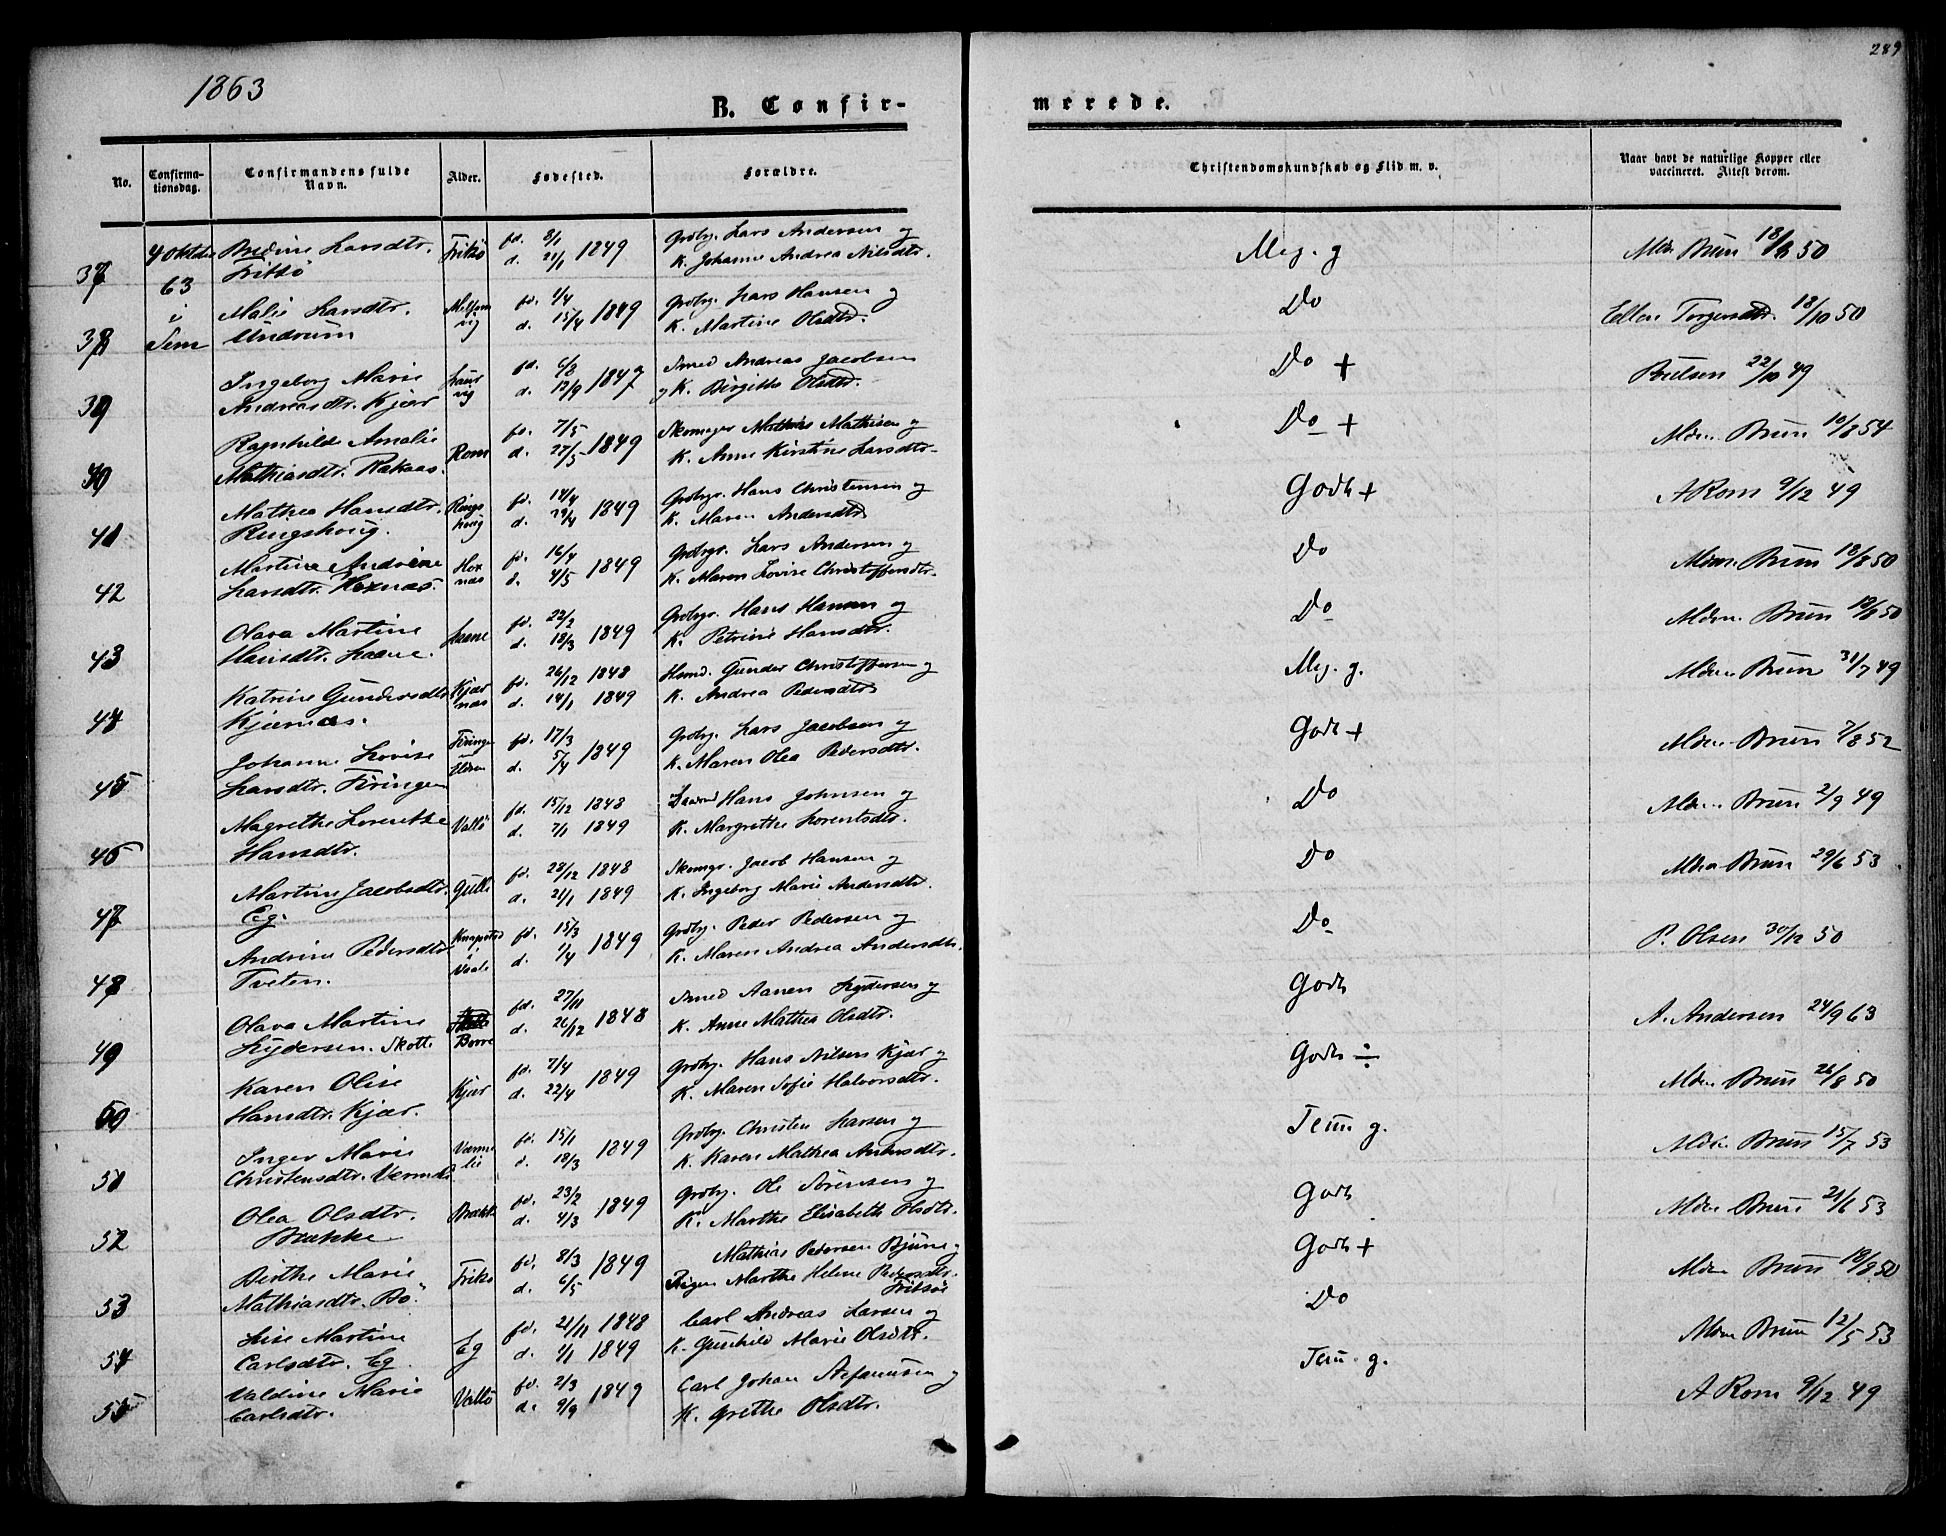 1863
289
B. Confir-
merede.
No.
Confirma-
tionsdag.
Confirmandens fulde
Navn.
Alder.
Fødested.
Forældre.
Christendomskundskab og Flid m. v.
Naar havt de naturlige Kopper eller
vaccineret. Attest derom.
4 Oktober
63
i
Sem
37
Bredine Larsdtr.
Friksö
Friksö
fd. 8/1
d. 21/1 1849
Grdbr. Lars Andersen og
K. Johanne Andrea Nilsdtr.
Meg. g
Mdm Brun 18/8 50
38
Malie Larsdtr.
Undrum
Melsom
vig
fd. 1/4
d. 15/4 1849
Grdbr. Lars Hansen og
K. Martine Olsdtr.
Do
Ellen Torgersdtr. 18/10 50
39
Ingeborg Marie
Andreasdtr. Kjær
Laur
vig
fd. 6/8
d. 12/9 1847
Smed Andreas Jacobsen
og K. Birgitte Olsdtr.
Do +
22/10 49
40
Ragnhilde Amalie
Mathiasdtr. Rakaas.
Rom
fd. 7/5
d. 27/5 1849
Skomager Mathias Mathisen og
K. Anne Kirstine Larsdtr.
Do +
Mdm. Brun 10/8 54
41
Mathea Hansdtr.
Ringshoug.
Rings
houg
fd. 14/4
d. 29/4 1849
Grdbr. Hans Christensen og
K. Maren Andersdtr
Godt +
A Rom 9/12 49
42
Martine Andrine
Larsdtr. Hoxnas.
Hox
nas
fd. 16/4
d. 4/5 1849
Grdbr. Lars Andersen og
K. Maren Lovise Christoffersdtr.
Do
Mdm. Brun 18/8 50
43
Olava Martine
Hansdtr. Laane.
Laane
fd. 22/2
d. 18/3 1849
Grdbr. Hans Hansen og
K. Petrine Hansdtr.
Do
Mdm. Brun 18/8 50
44
Katrine Gundersdtr
Kjærnæs.
Kjær
næs
fd. 26/12 1848
d. 14/1 1849
Husmd. Gunder Christoffersen og
K. Andrea Pedersdtr
Meg. g.
Mdm Brun 31/7 49
45
Johanne Lovise
Larsdtr. Firingen
Firingen
fd. 17/3
d. 5/4 1849
Grdbr. Lars Jacobsen og
K. Maren Olea Pedersdtr.
Godt +
Mdm Brun 7/8 52
46
Magrethe Lorentze
Hansdtr.
Vallö
fd. 15/12 1848
d. 7/1 1849
Hans Johnsen og
K. Margrethe Lorentsdtr.
Do
Mdm Brun 2/9 49
47
Martine Jacobsdtr.
Eg.
Gulli
fd. 28/12 1848
d. 21/1 1849
Skomgr. Jacob Hansen og
K. Ingeborg Marie Andersdtr.
Do
Mdm Brun 29/6 53
48
Andrine Pedersdtr
Tveten.
Knapstad
i
Vaale
fd. 15/3
d. 1/4 1849
Grdbr. Peder Pedersen og
K. Maren Andrea Andersdtr.
Do
P. Olsen 30/12 50
49
Olava Martine
Lydersen. Skotti
Borre
fd. 27/11
d. 26/12 1848
Smed Aanen Lydersen og
K. Anne Mathea Olsdtr.
Godt
A. Andersen 24/9 63
50
Karen Olise
Hansdtr. Kjær.
Kjær
fd. 7/4
d. 22/4 1849
Grdbr. Hans Nilsen Kjær og
K. Maren Sofie Halvorsdtr.
Godt ÷
Mdm Brun 26/8 50
51
Inger Marie
Christensdtr. Vermeli
Værme
lie
fd. 15/1
d. 18/3 1849
Grdbr. Christen Larsen og
K. Karen Mathea Andersdtr.
Tem. g.
Mdm Brun 15/7 53
52
Olea Olsdtr.
Brække
Brække
fd. 23/2
d. 4/3 1849
Grdbr. Ole Sörensen og
K. Marthe Elisabeth Olsdtr.
Godt
Mdm Brun 21/6 53
53
Birthe Marie
Mathiasdtr. Bö
Friksö
fd. 8/3
d. 6/5 1849
Mathias Pedersen Bjune og
Pigen Marthe Helene Pedersdtr.
Friksöe
Godt +
Mdm Brun 18/8 50
54
Lise Martine
Carlsdtr. Eg.
Eg
fd. 21/11 1848
d. 1/1 1849
Carl Andreas Larsen og
K. Gunhild Marie Olsdtr.
Do
Mdm Brun 12/5 53
55
Valdine Marie
Carlsdtr.
Vallö
fd. 2/3
d. 9/9 1849
Carl Johan Stefanusen og
K. Grethe Olsdtr.
Tem. g.
A Rom 9/12 49